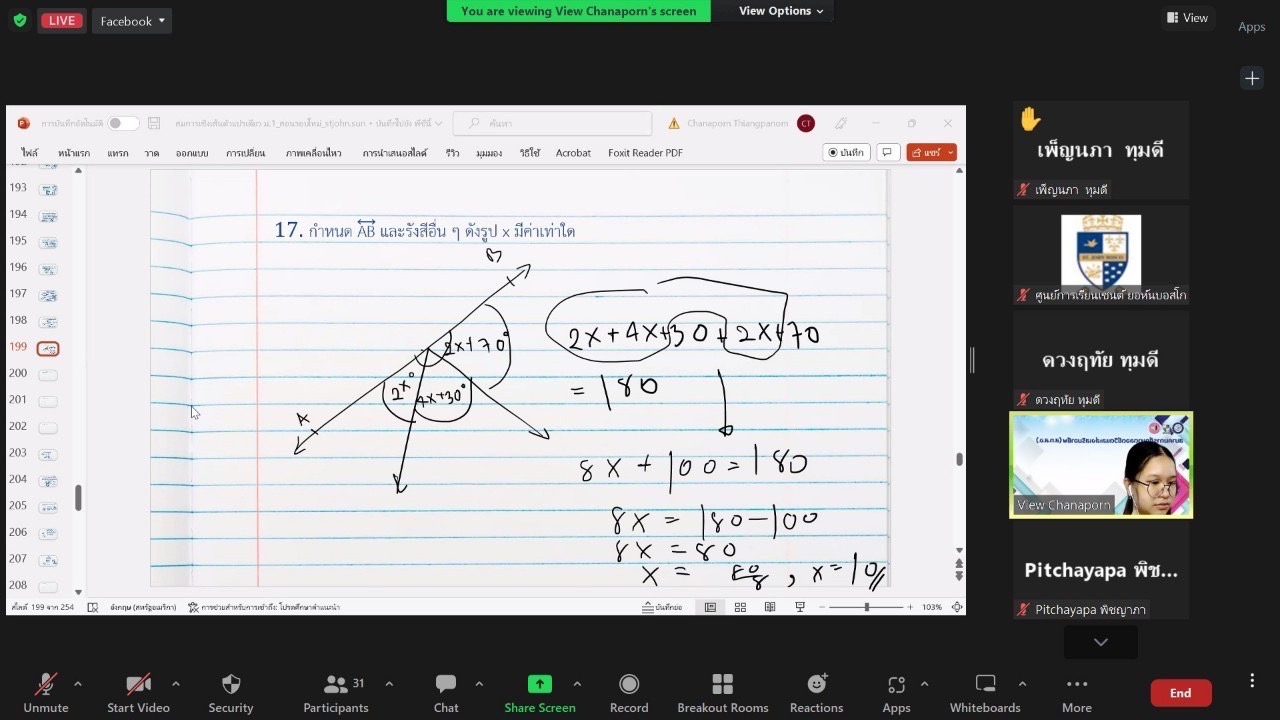 You are viewing View Chanaporn's screen
View Options
LIVE
Facebook
View
Apps
การบันทึกอัตโนมัติ
สมการเชิงเส้นตัวแปรเดียว ม.1_สอนรอบใหม่_stjohn.sun • บันทึกไปยัง พีซีนี้
ค้นหา
Chanaporn Thiangpanom
CT
ไฟล์ หน้าแรก แทรก วาด ออกแบบ การเปลี่ยน ภาพเคลื่อนไหว การนำเสนอสไลด์ รีวิว มุมมอง วิธีใช้ Acrobat Foxit Reader PDF
บันทึก
แชร์
193
194
195
196
197
198
199
200
201
202
203
204
205
206
207
208
17. กำหนด AB และรังสีอื่น ๆ ดังรูป x มีค่าเท่าใด
B
2x+70°
2x°
4x+30°
A
2x+4x+30+2x+70
= 180
8x + 100 = 180
8x = 180-100
8x = 80
x = 80/8 , x=10
สไลด์ 199 จาก 254
อังกฤษ (สหรัฐอเมริกา)
การช่วยสำหรับการเข้าถึง: โปรดศึกษาคำแนะนำ
บันทึกย่อ
103%
เพ็ญนภา ทุมดี
เพ็ญนภา ทุมดี
ศูนย์การเรียนเซนต์ ยอห์นบอสโก
ดวงฤทัย ทุมดี
ดวงฤทัย ทุมดี
View Chanaporn
Pitchayapa พิช...
Pitchayapa พิชญาภา
Unmute
Start Video
Security
31
Participants
Chat
Share Screen
Record
Breakout Rooms
Reactions
Apps
Whiteboards
More
End